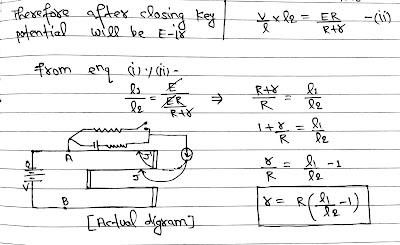 Therefore after closing key
potential will be E-ir
V/l × l2 = ER/R+r -(ii)
from enq (i) ÷ (ii) -
l1/l2 = E/ER/R+r ⇒ R+r/R = l1/l2
1+r/R = l1/l2
r/R = l1/l2 - 1
r = R(l1/l2 - 1)
A
J'
J
V
B
[Actual digram]